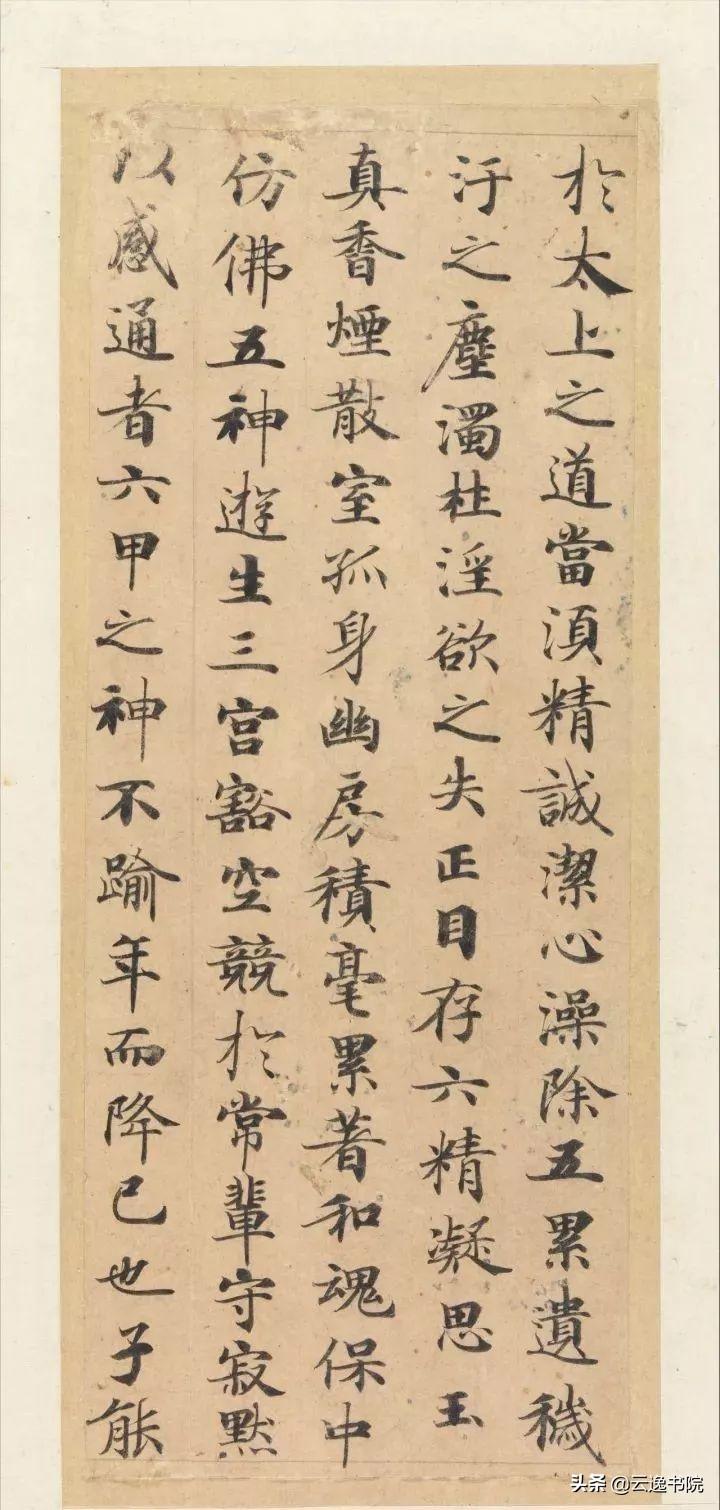 於太上之道當湏精誠潔心澡除五累遺穢
汙之塵濁杜淫欲之失正目存六精凝思玉
真香煙散室孤身幽房積毫累著和魂保中
仿佛五神遊生三宮豁空競於常輩守寂默
以感通者六甲之神不踰年而降已也子能
头条@云逸书院